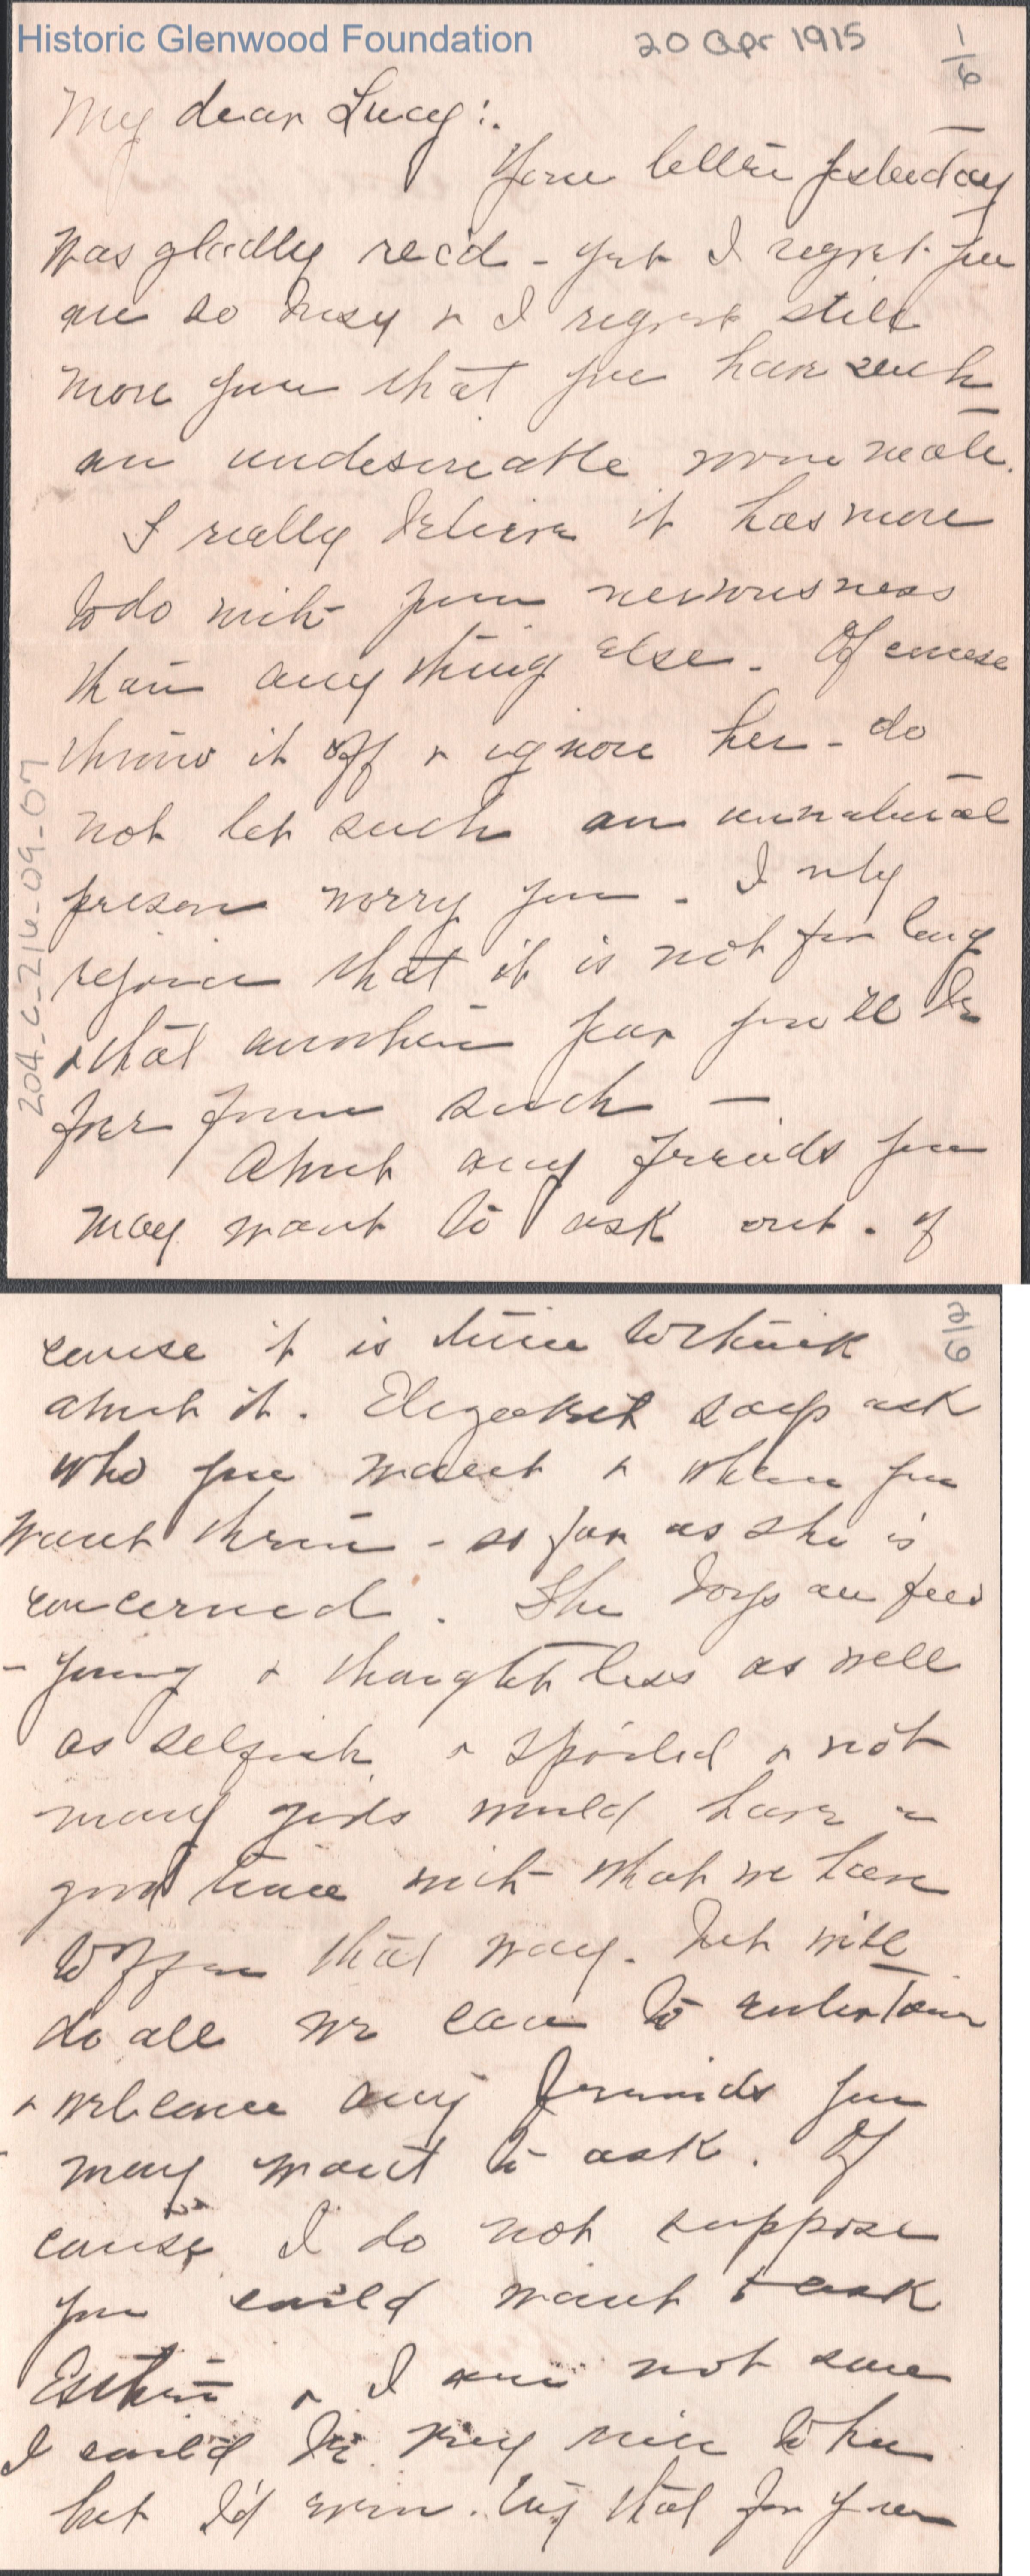 Historic Glenwood Foundation
20 Apr 1915
1/6
My dear Lucy:.
Your letter yesterday
was gladly rec'd - yet I regret you
are so busy & I regret still
more that you have such
an undesireable room mate.
I really believe it has more
to do with your nervousness
than any thing else. Of course
throw it off & ignore her - do
not let such an unnatural
person worry you. I only
rejoice that it is not for long
& that another year you'll be
free from such —
About any friends you
may want to ask out. of
204-C-216-09-07
2/6
course it is time to think
about it. Elizabeth says ask
who you want & when you
want them - so far as she is
concerned. The boys are few
- young & thoughtless as well
as selfish & spoiled & not
many girls would have a
good time with what we have
to offer that way. But will
do all we can to entertain
& welcome any friends you
may want to ask. Of
course I do not suppose
you could want to ask
Esther & I am not sure
I could be very nice to her
but I'd even try that for you